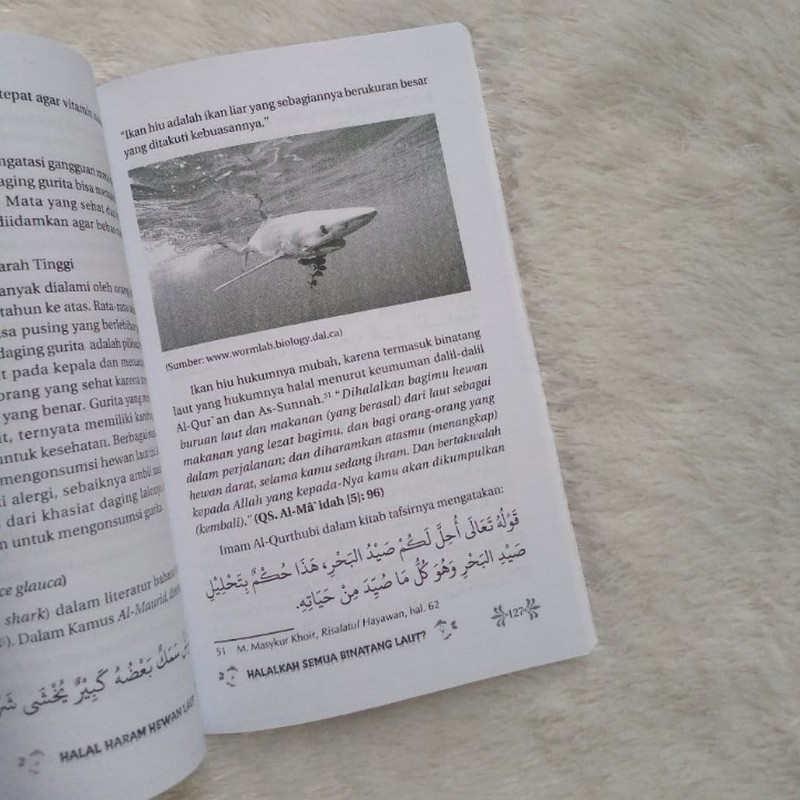 tepat agar vitamin
ngatasi gangguan
daging gurita bisa
Mata yang sehat
diidamkan agar
arah Tinggi
anyak dialami oleh
tahun ke atas. Rata-rata
sa pusing yang
daging gurita adalah
t pada kepala dan
orang yang sehat karena
yang benar. Gurita yang
it, ternyata memiliki
untuk kesehatan. Berbagai
mengonsumsi hewan laut
i alergi, sebaiknya
dari khasiat daging
n untuk mengonsumsi gurita
ce glauca)
shark) dalam literatur
Dalam Kamus Al-Maurid,
سَمَكٌ بَعْضُهُ كَبِيْرٌ يُخْشَى
HALAL HARAM HEWAN LAUT
"Ikan hiu adalah ikan liar yang sebagiannya berukuran besar
yang ditakuti kebuasannya."
(Sumber: www.wormlab.biology.dal.ca)
Ikan hiu hukumnya mubah, karena termasuk binatang
laut yang hukumnya halal menurut keumuman dalil-dalil
Al-Qur`an dan As-Sunnah.51 "Dihalalkan bagimu hewan
buruan laut dan makanan (yang berasal) dari laut sebagai
makanan yang lezat bagimu, dan bagi orang-orang yang
dalam perjalanan; dan diharamkan atasmu (menangkap)
hewan darat, selama kamu sedang ihram. Dan bertakwalah
kepada Allah yang kepada-Nya kamu akan dikumpulkan
(kembali)." (QS. Al-Mâ`idah [5]: 96)
Imam Al-Qurthubi dalam kitab tafsirnya mengatakan:
قَوْلُهُ تَعَالَى أُحِلَّ لَكُمْ صَيْدُ البَحْرِ، هَذَا حُكْمٌ بِتَحْلِيْلِ
صَيْدِ البَحْرِ وَهُوَ كُلُّ مَا صُيِّدَ مِنْ حَيَاتِهِ.
51 M. Masykur Khoir, Risalatul Hayawan, hal. 62
HALALKAH SEMUA BINATANG LAUT?
127